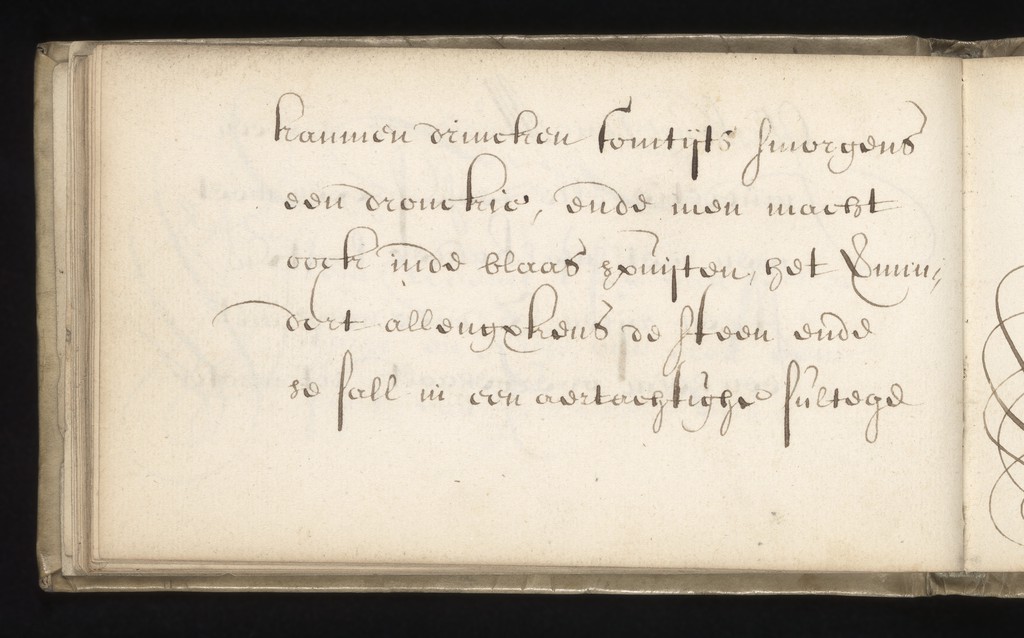 kannen drincken somtijts smorgens
een dronckie, ende men macht
oock inde blaas spuijten, het vmin,
dert allengxkens de steen ende
se sall in een aertachtighe sultege